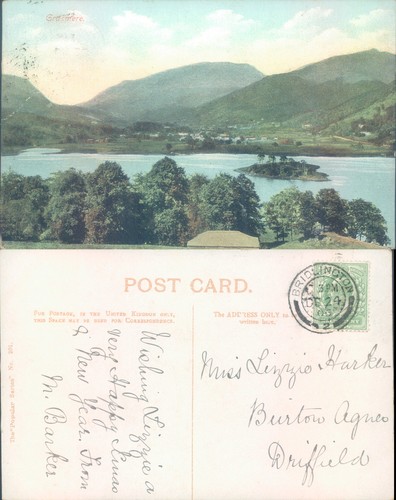 Grasmere.
POST CARD.
FOR POSTAGE, IN THE UNITED KINGDOM ONLY,
THIS SPACE MAY BE USED FOR CORRESPONDENCE.
The ADDRESS ONLY to be
written here.
BRIDLINGTON
PM
DE 24
2
Wishing Lizzie a
very Happy Xmas
& New Year. From
M. Barker
Miss Lizzie Harker
Burton Agnes
Driffield